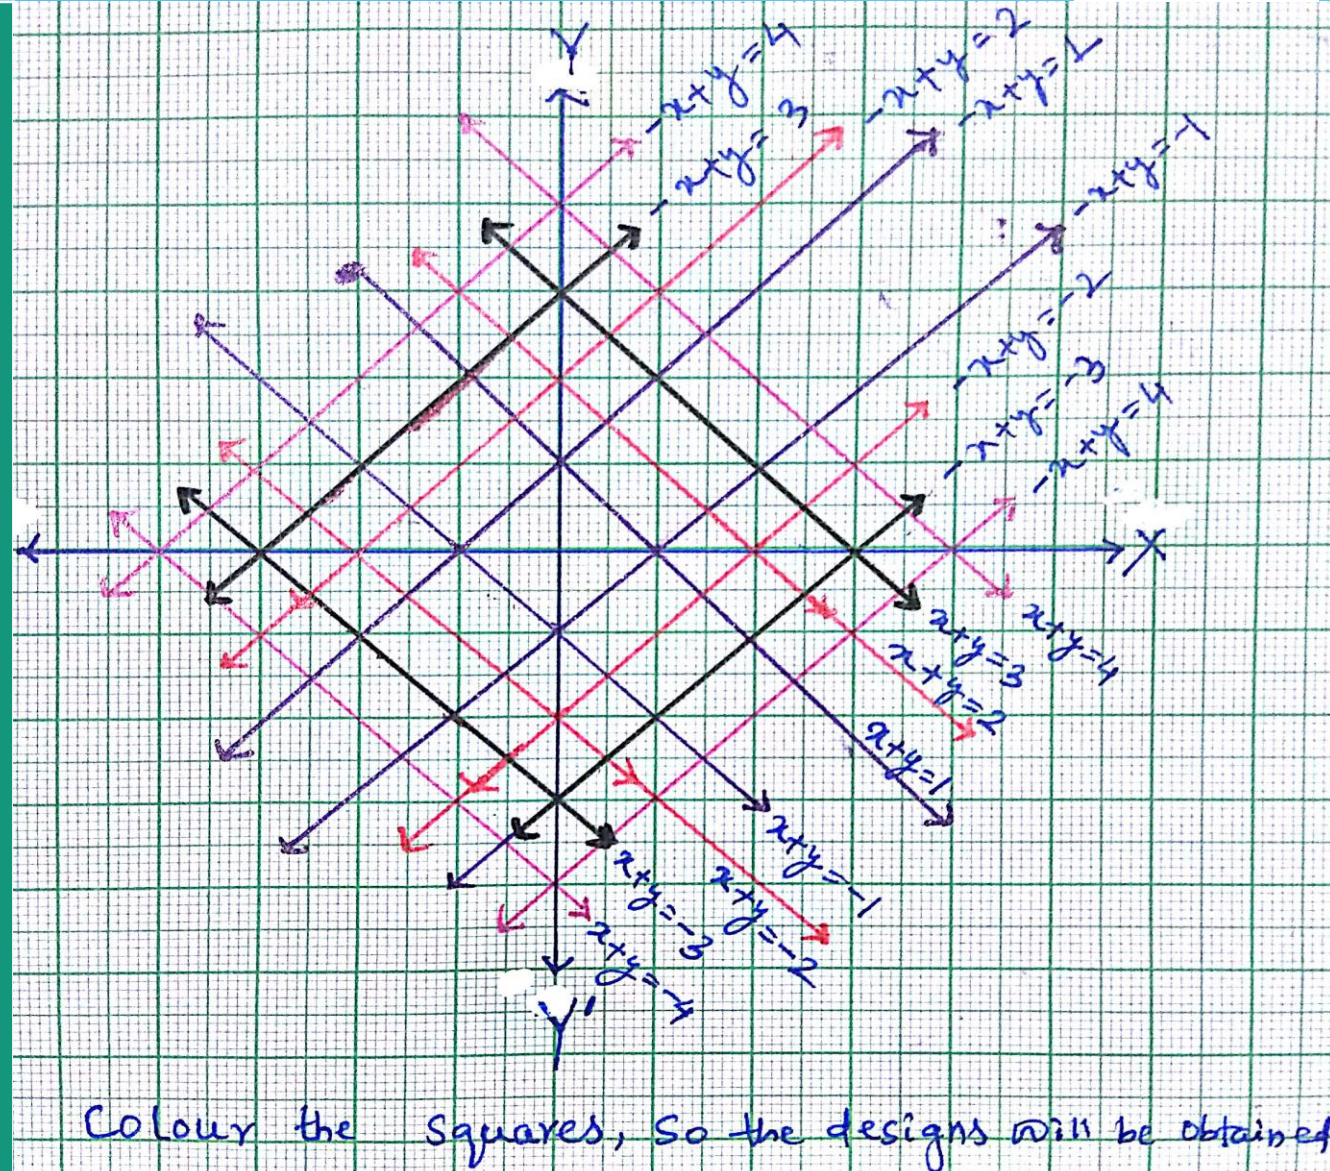 Y
-x+y=4
-x+y=3
-x+y=2
-x+y=1
-x+y=-1
-x+y=-2
-x+y=-3
-x+y=4
X
x+y=4
x+y=3
x+y=2
x+y=1
x+y=-1
x+y=-2
x+y=-3
x+y=-4
Y'
Colour the squares, So the designs will be obtained